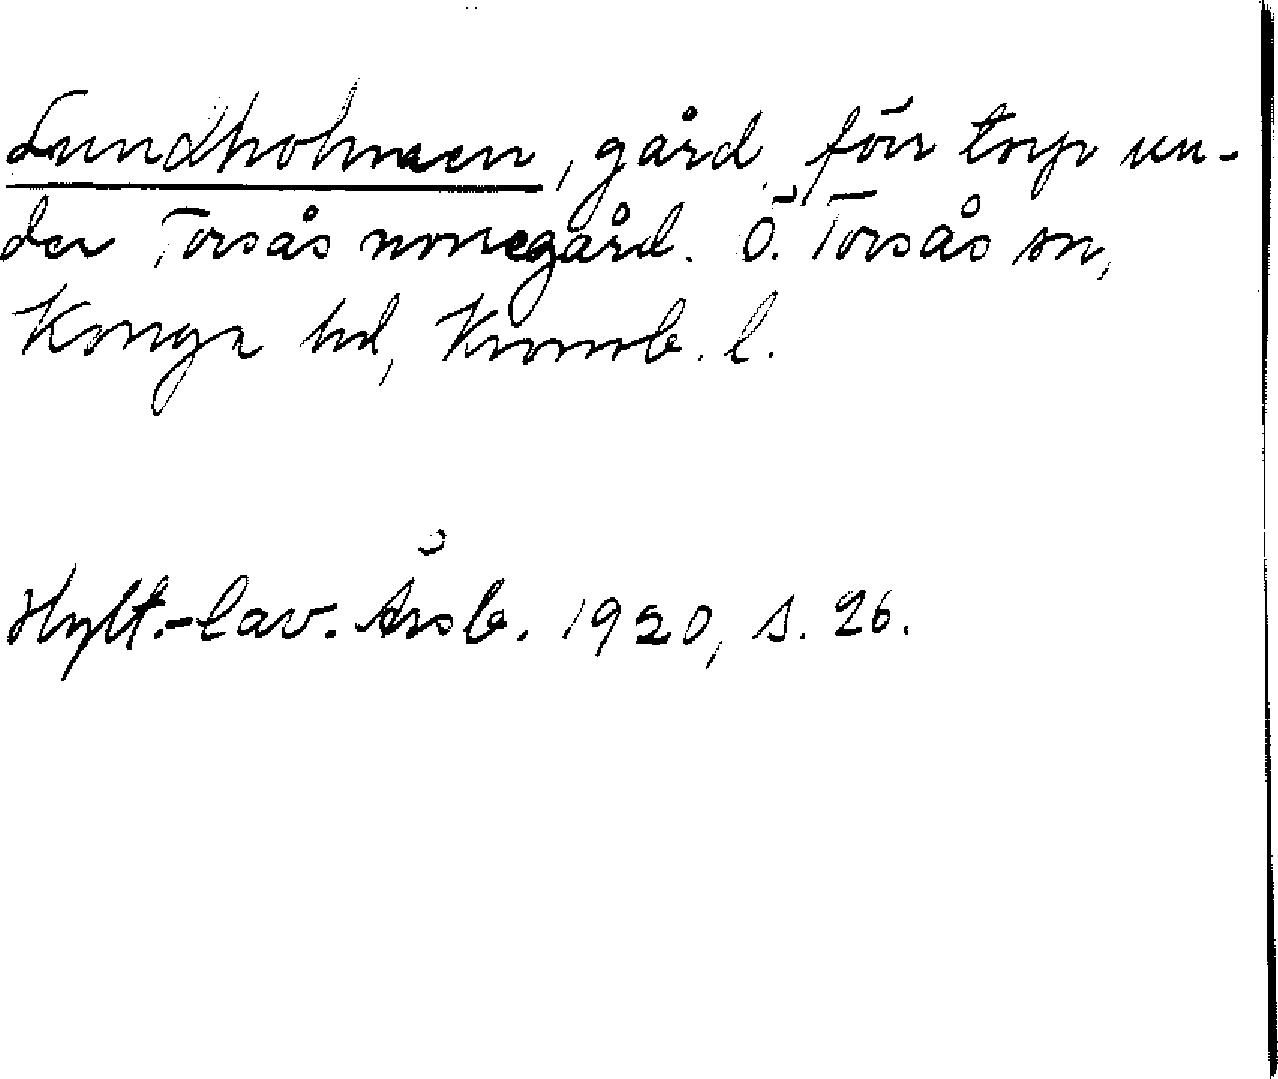 Lundholmen, gård, förr torp un-
der Torsås norregård. Ö. Torsås sn,
Konga hd, Kronob. l.
Hylt.-Cav. Årsb. 1920, s. 26.